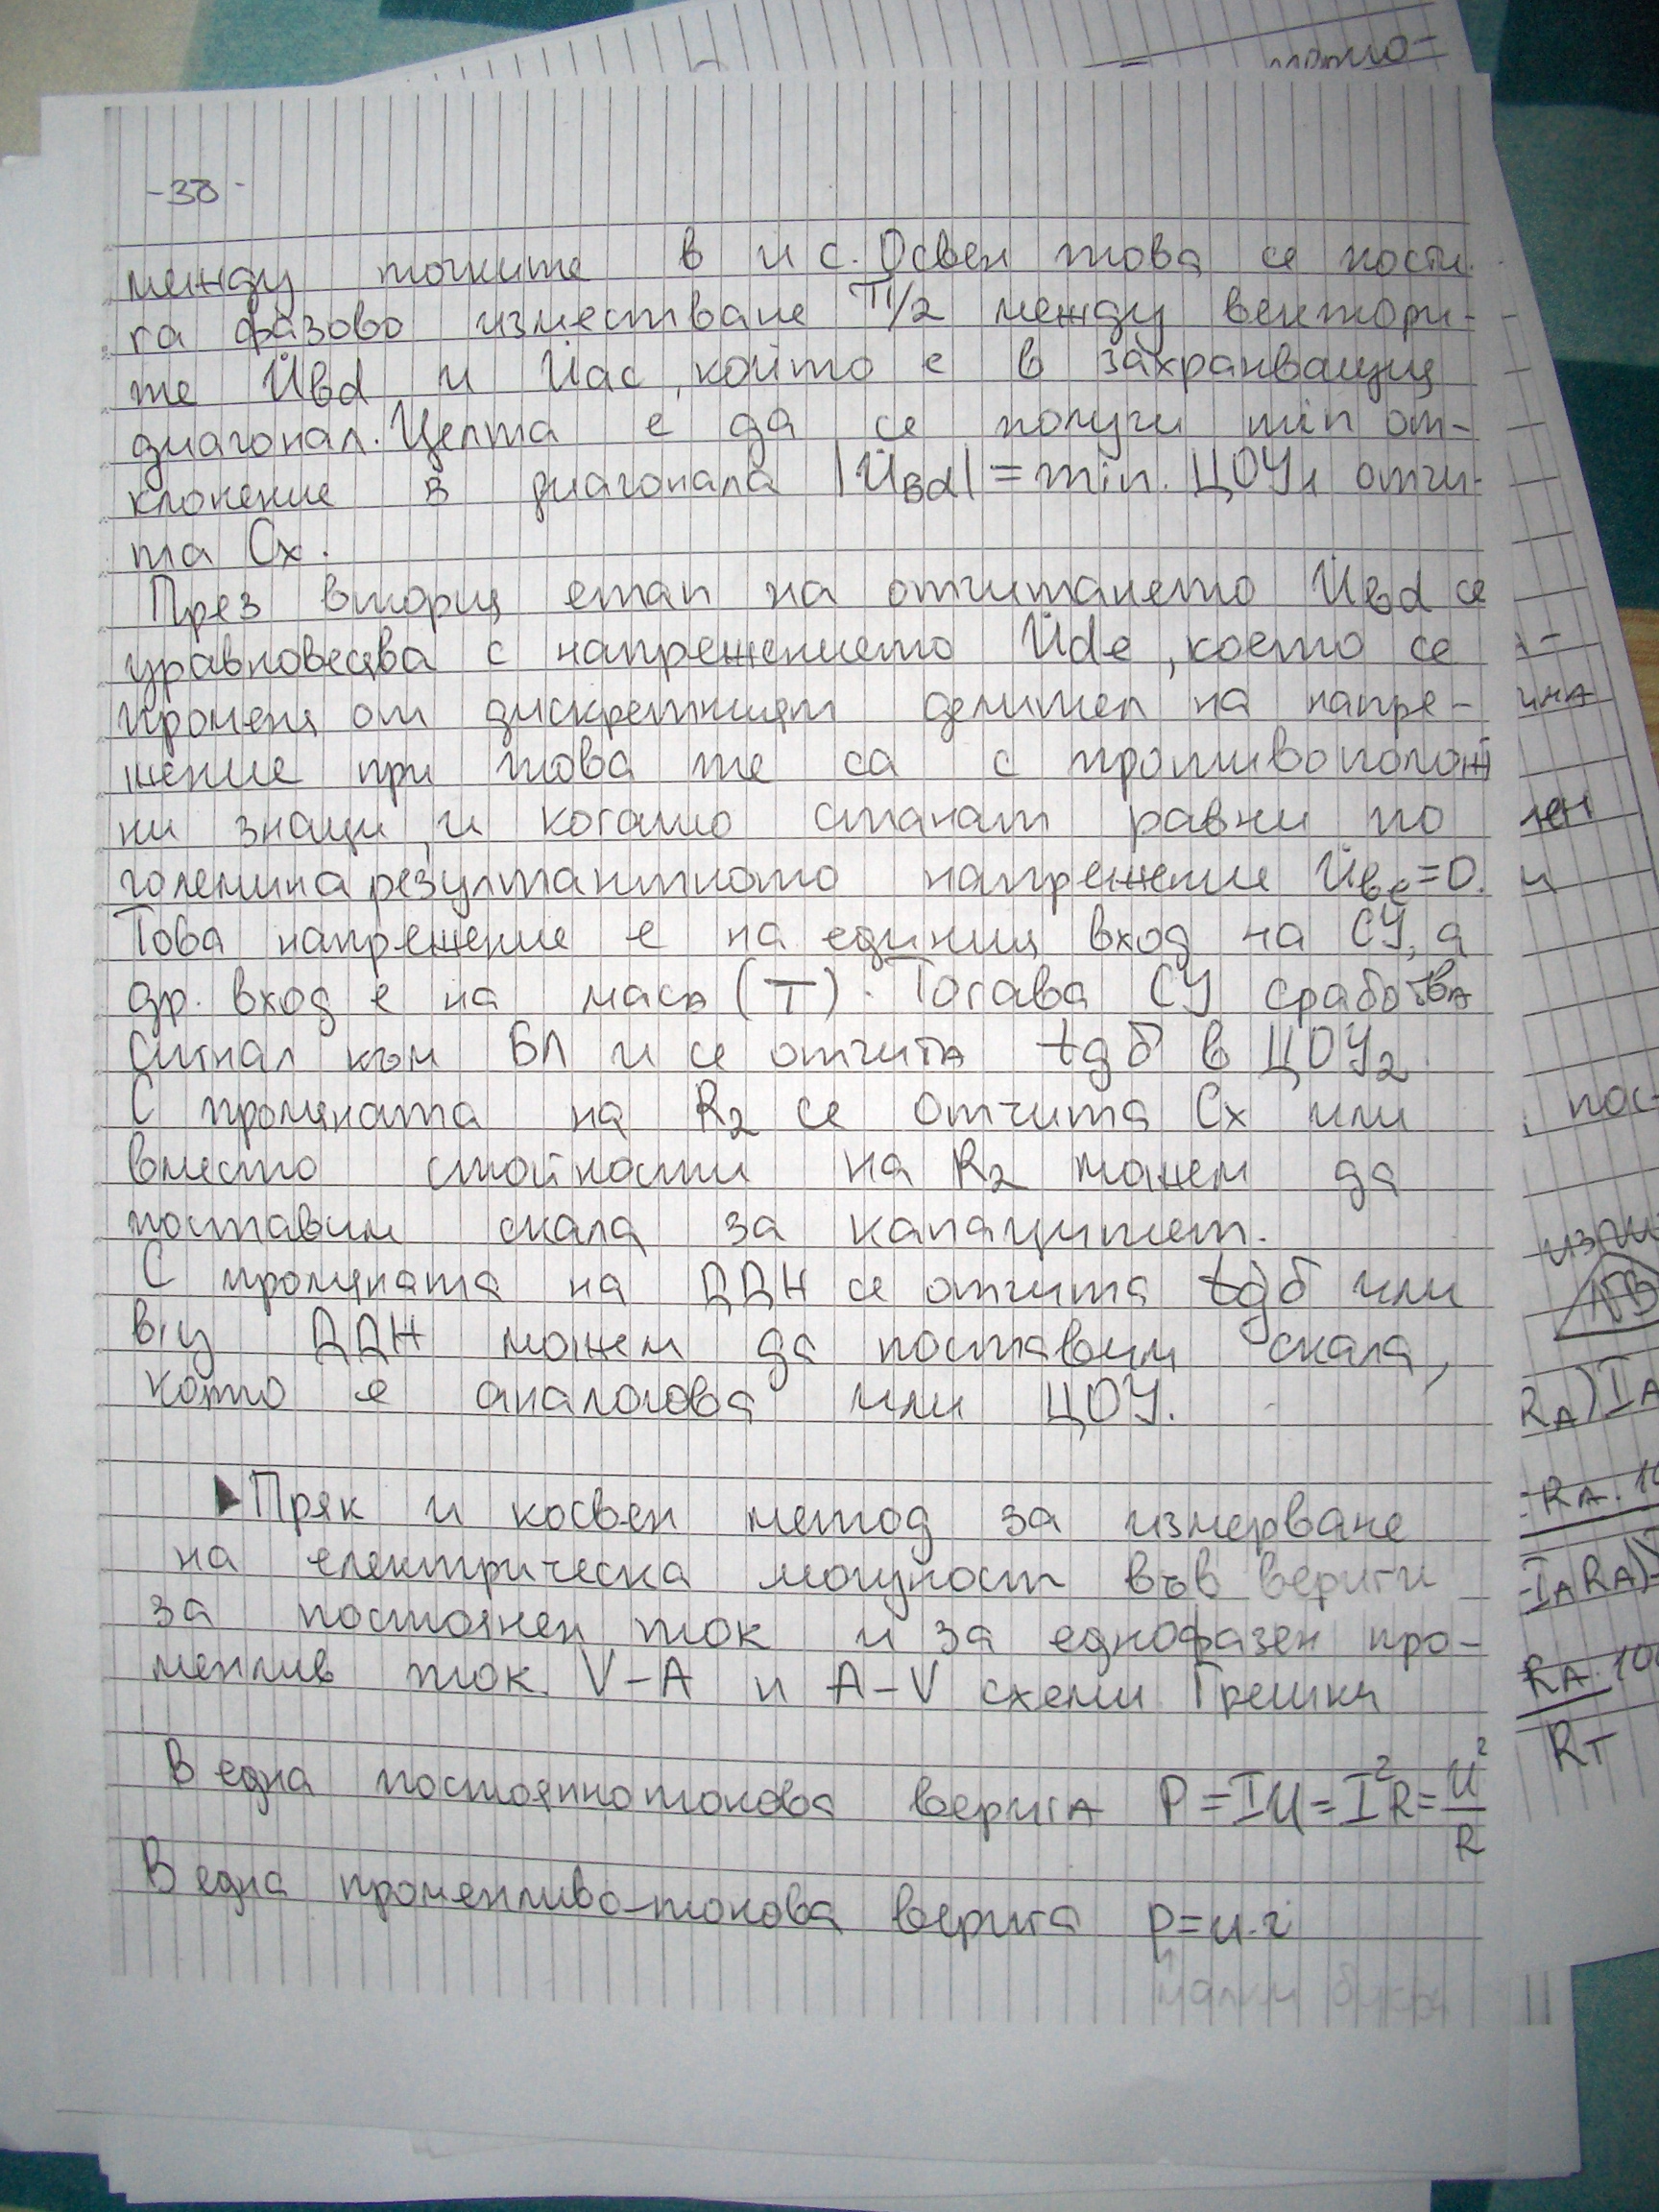 -38-
между точките в и с. Освен това се пости-
га фазово изместване π/2 между вектори-
те U̇bd и U̇ac, който е в захранващия
диагонал. Целта е да се получи min от-
клонение в диагонала |U̇bd| = min. ЦОУ1 отчи-
та Cx.
През втория етап на отчитането U̇bd се
уравновесява с напрежението U̇de, което се
променя от дискретният делител на напре-
жение при това те са с противополож
ни знаци, и когато станат равни по
големина резултантното напрежение U̇be=0.
Това напрежение е на единия вход на СУ, а
др. вход е на маса (⊥). Тогава СУ сработва
сигнал към БЛ и се отчита tgδ в ЦОУ2.
С промяната на R2 се отчита Cx или
вместо стойности на R2 можем да
поставим скала за капацитет.
С промяната на ДДН се отчита tgδ или
в/у ДДН можем да поставим скала,
която е аналогова или ЦОУ.
▶Пряк и косвен метод за измерване
на електрическа мощност във вериги
за постоянен ток и за еднофазен про-
менлив ток. V-A и A-V схеми. Грешки
В една постояннотокова верига P=IU=I²R=U²/R
В една променливо-токова верига p=u.i
малки букви
RA)IA
RT